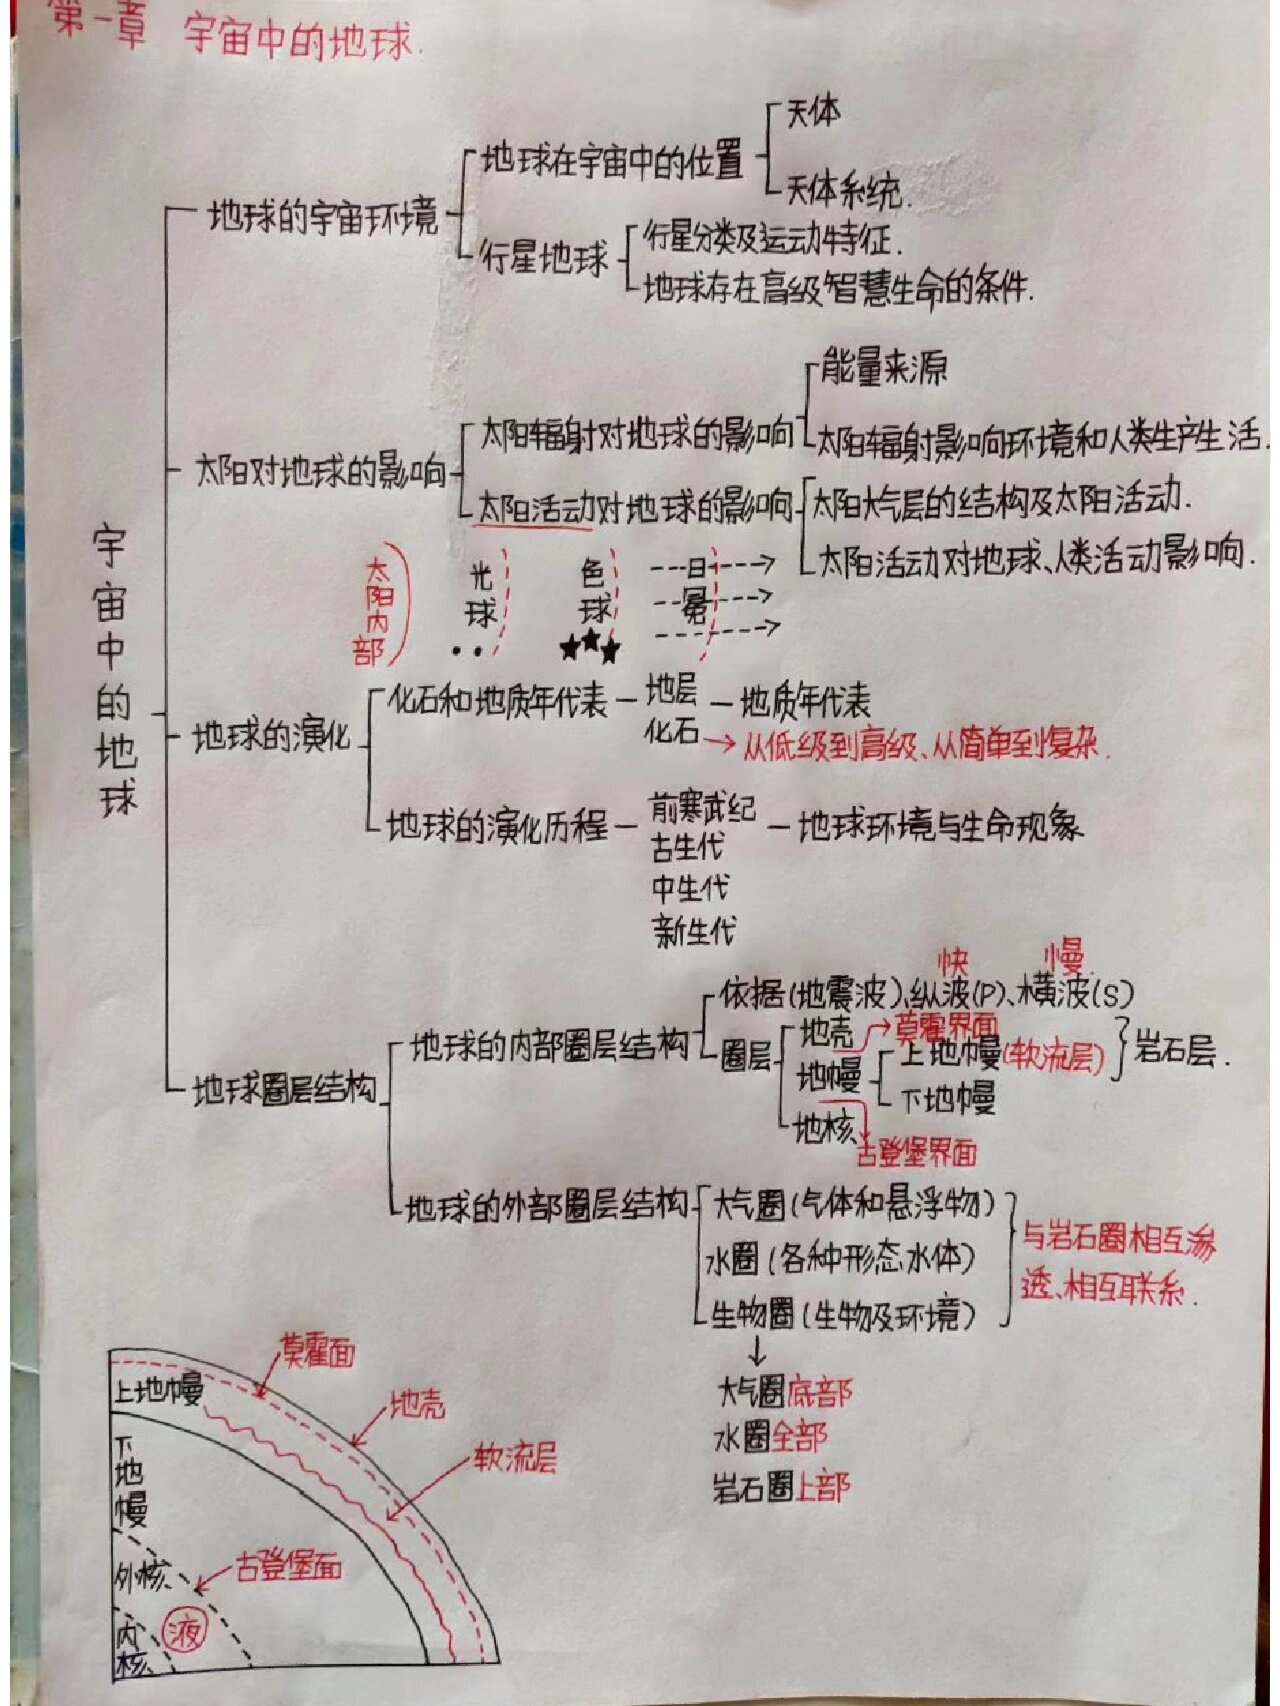 第一章 宇宙中的地球.
宇宙中的地球
地球的宇宙环境
地球在宇宙中的位置
天体
天体系统.
行星地球
行星分类及运动特征.
地球存在高级智慧生命的条件.
太阳对地球的影响
太阳辐射对地球的影响
能量来源
太阳辐射影响环境和人类生产生活.
太阳活动对地球的影响
太阳大气层的结构及太阳活动.
太阳活动对地球、人类活动影响.
太阳内部
光球
色球
日冕
地球的演化
化石和地质年代表
地层
化石
地质年代表
从低级到高级、从简单到复杂.
地球的演化历程
前寒武纪
古生代
中生代
新生代
地球环境与生命现象
地球圈层结构
地球的内部圈层结构
快 慢
依据(地震波)、纵波(P)、横波(S)
圈层
地壳
莫霍界面
地幔
上地幔(软流层)
下地幔
岩石层.
地核
古登堡界面
地球的外部圈层结构
大气圈(气体和悬浮物)
水圈(各种形态水体)
生物圈(生物及环境)
与岩石圈相互渗
透、相互联系.
大气圈底部
水圈全部
岩石圈上部
莫霍面
地壳
软流层
上地幔
下地幔
外核
古登堡面
液
内核